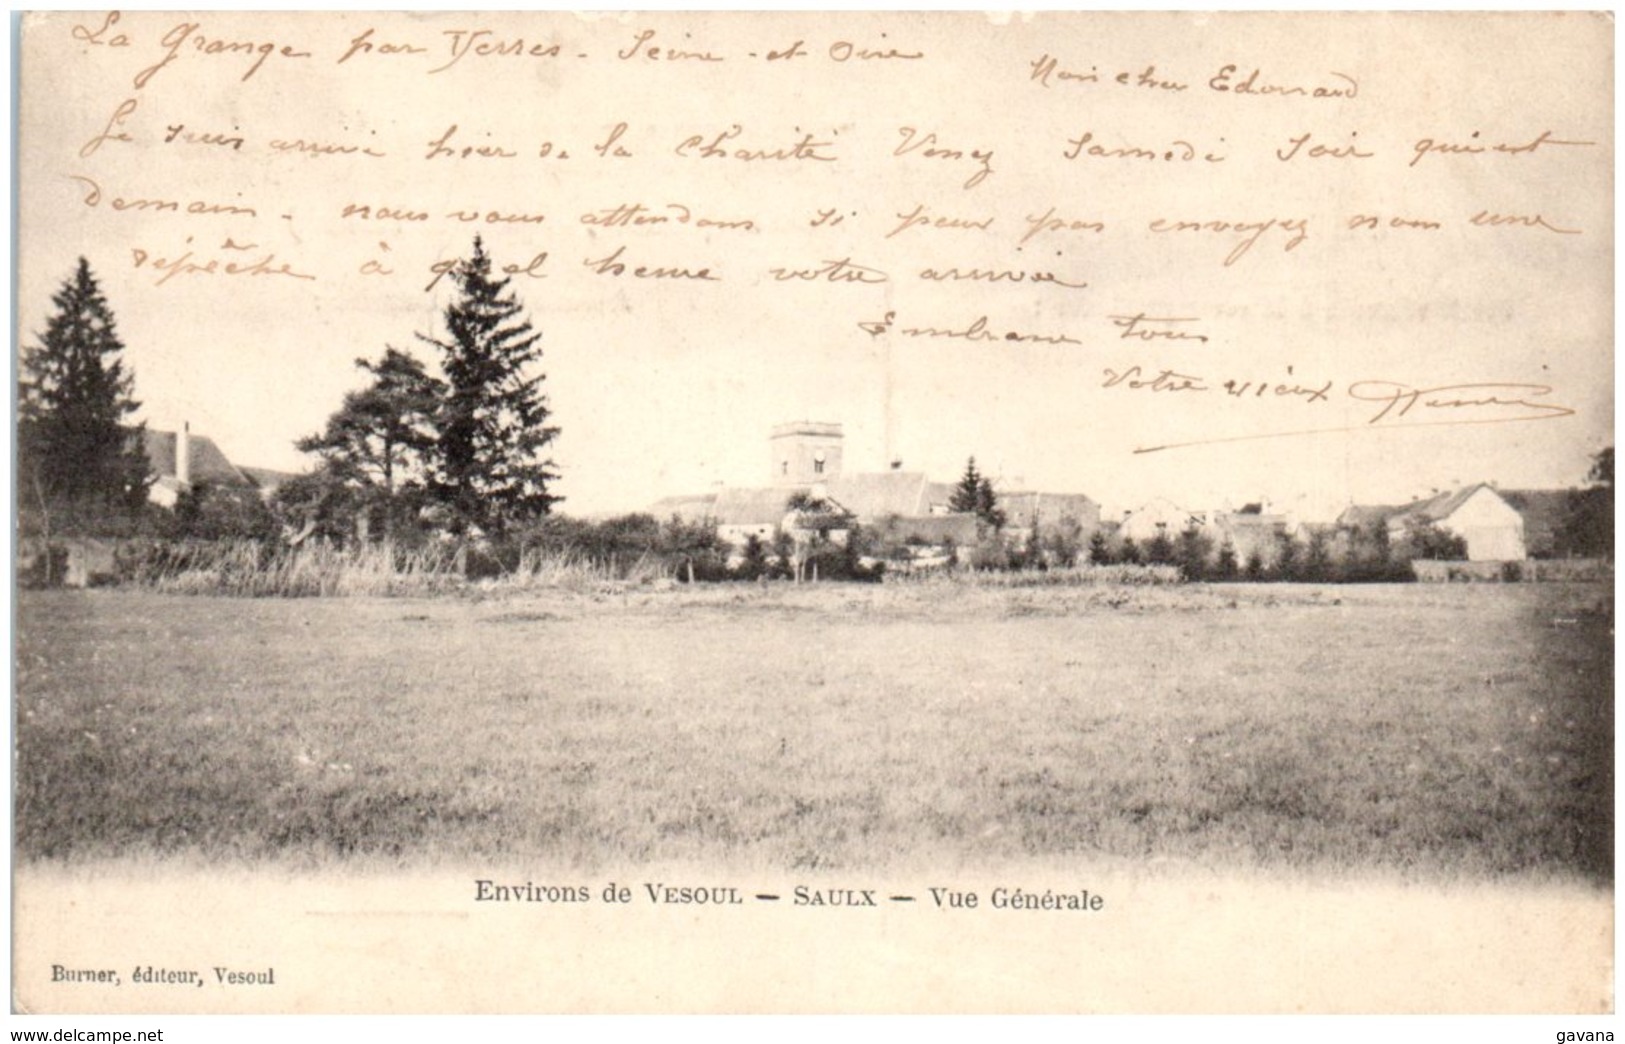 La Grange par Yerres - Seine-et Oise
Mon cher Edouard
Je suis arrivé hier de la Charité Venez Samedi Soir qui est
demain - nous vous attendons si peux pas envoyez nous une
dépêche à quel heure votre arrivée
Embrasse tous
Votre vieux Henri
Environs de VESOUL — SAULX — Vue Générale
Burner, éditeur, Vesoul
delcampe.net
gavana